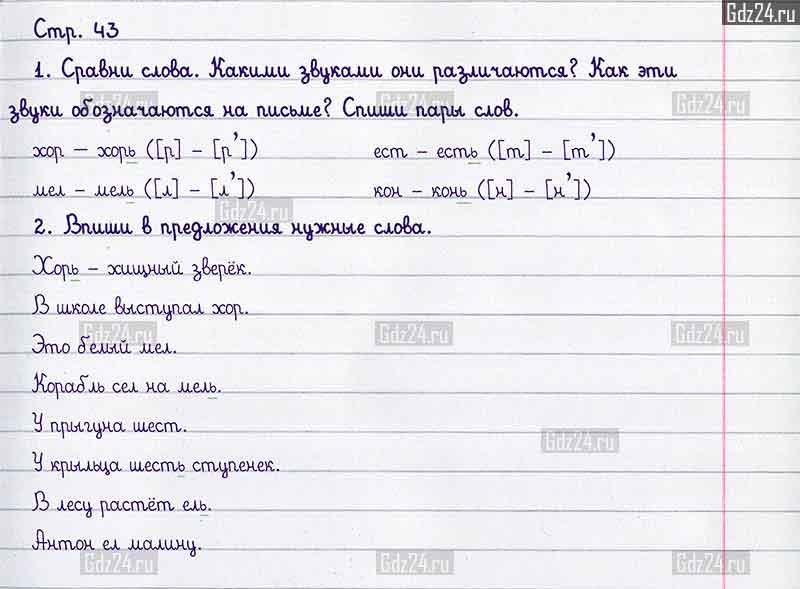 Gdz24.ru
Стр. 43
1. Сравни слова. Какими звуками они различаются? Как эти
звуки обозначаются на письме? Спиши пары слов.
Gdz24.ru Gdz24.ru Gdz24.ru
хор – хорь ([р] – [р']) ест – есть ([т] – [т'])
мел – мель ([л] – [л']) кон – конь ([н] – [н'])
Gdz24.ru
2. Впиши в предложения нужные слова.
Хорь – хищный зверёк.
В школе выступал хор.
Gdz24.ru Gdz24.ru Gdz24.ru
Это белый мел.
Корабль сел на мель.
У прыгуна шест.
Gdz24.ru
У крыльца шесть ступенек.
В лесу растёт ель.
Антон ел малину.
Gdz24.ru Gdz24.ru Gdz24.ru